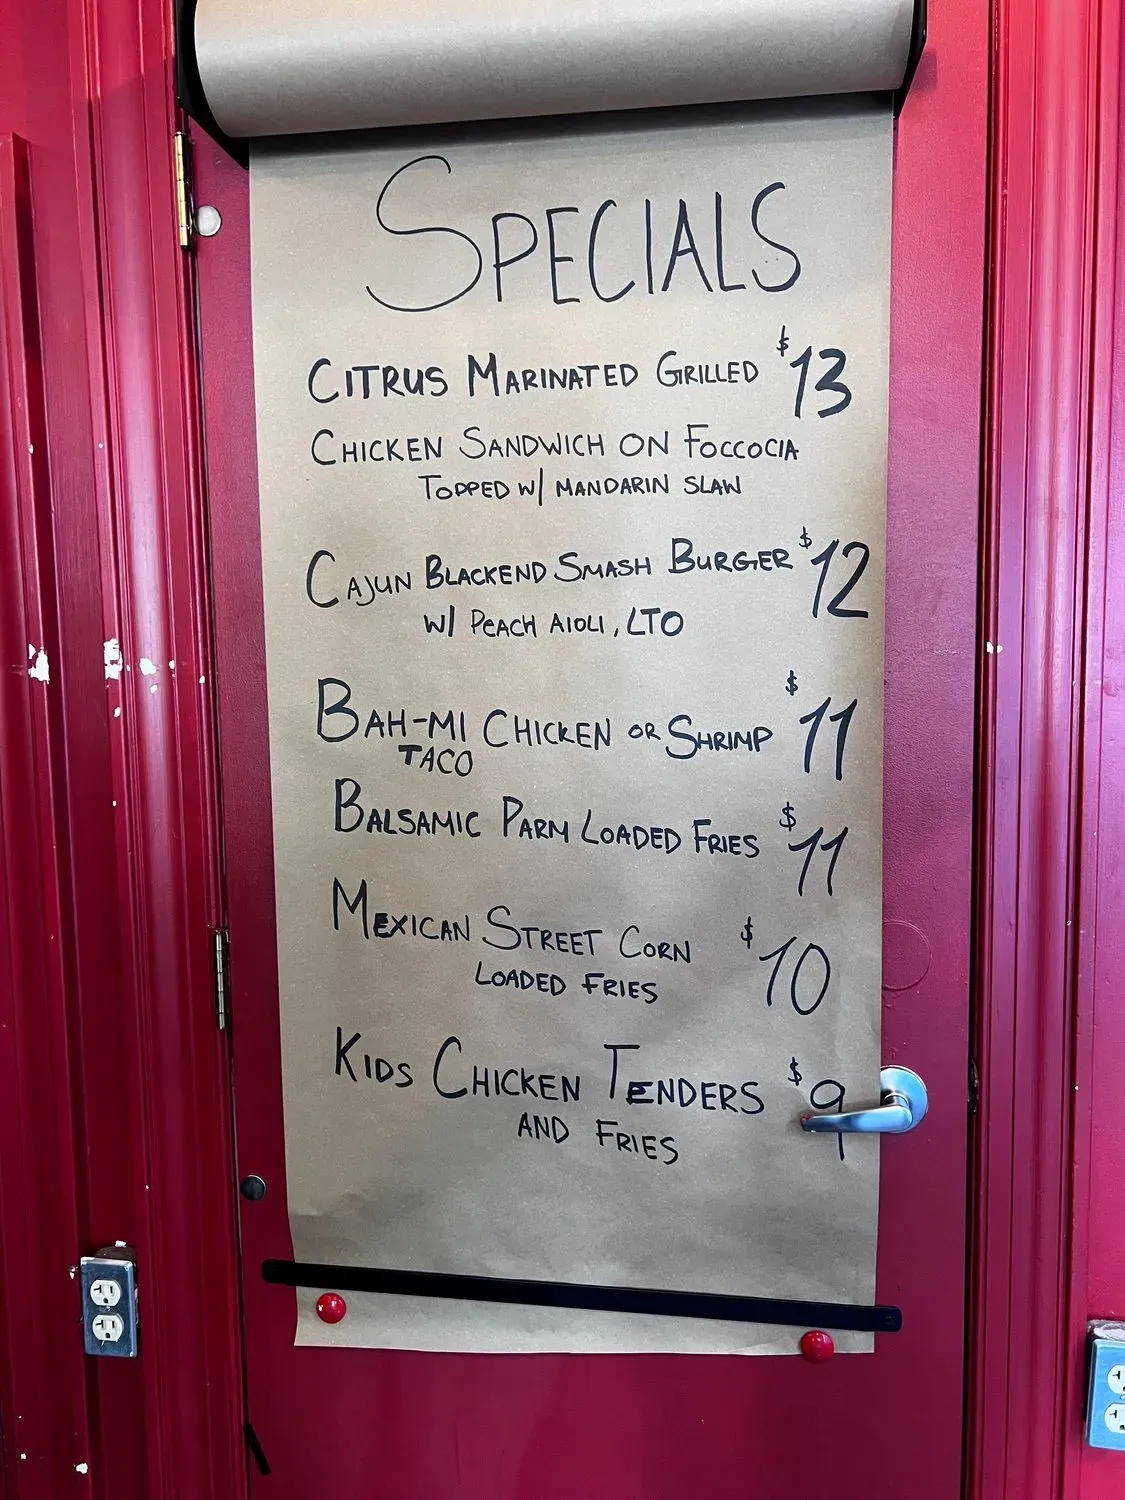 SPECIALS
CITRUS MARINATED GRILLED $13
CHICKEN SANDWICH ON FOCCOCIA
TOPPED W/ MANDARIN SLAW
CAJUN BLACKEND SMASH BURGER $12
W/ PEACH AIOLI, LTO
BAH-MI CHICKEN OR SHRIMP $11
TACO
BALSAMIC PARM LOADED FRIES $11
MEXICAN STREET CORN $10
LOADED FRIES
KIDS CHICKEN TENDERS $9
AND FRIES